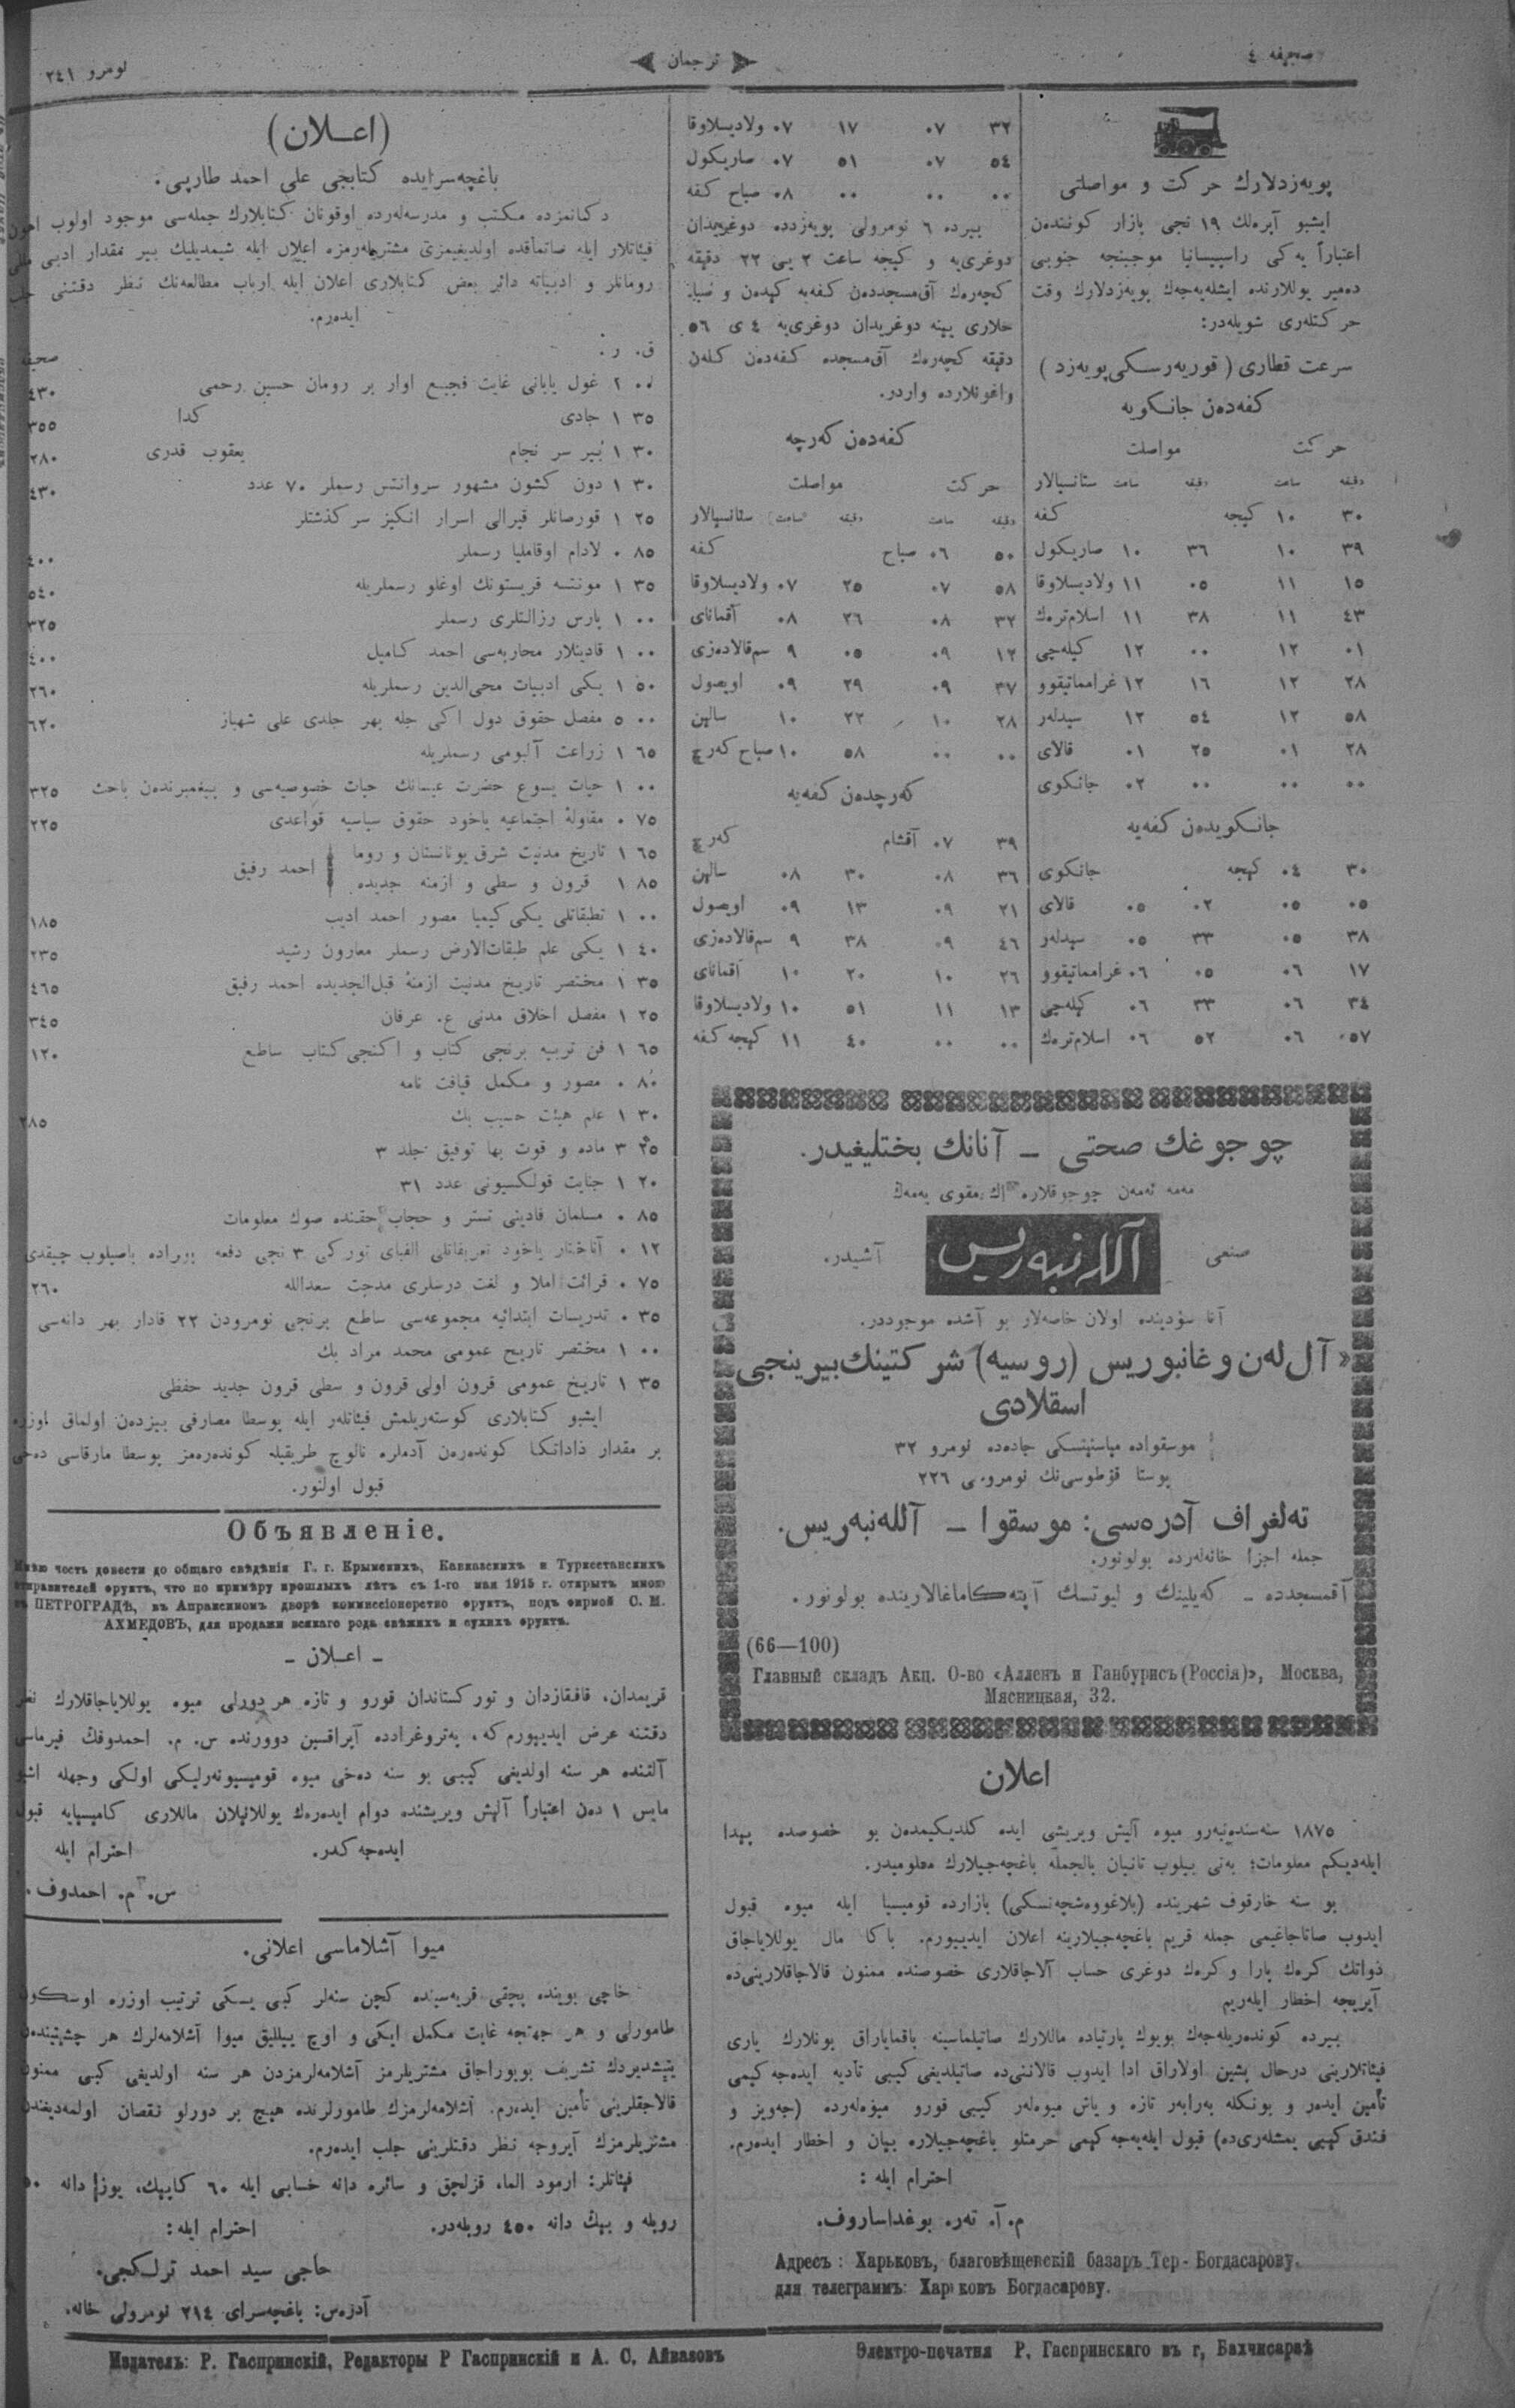 صحیفه ٤
ترجمان
نومرو ٢٤١
پویه‌زدلارك حركت و مواصلتی
ایشبو آپره‌لك ١٩ نجی بازار كونندەن
اعتباراً یه‌كی راسپیسانیا موجبنجه جنوبی
دەمیر یوللارنده ایشله‌یه‌جه‌ك پویه‌زدلارك وقت
حركتله‌ری شویله‌در:
سرعت قطاری (قوریه‌رسكی پویه‌زد)
كفه‌دەن جانكویه
حركت مواصلت
دقیقه ساعت دقیقه ساعت ستانسیالار
٣٠ ١٠ كیجه كفه
٣٩ ١٠ ٣٦ ١٠ صاریكول
١٥ ١١ ٠٥ ١١ ولادیسلاوقا
٤٣ ١١ ٣٨ ١١ اسلام‌ترەك
٠١ ١٢ ٠٠ ١٢ كیله‌چی
٢٨ ١٢ ١٦ ١٢ غرامماتیقوو
٥٨ ١٢ ٥٤ ١٢ سیدله‌ر
٢٨ ٠١ ٢٥ ٠١ قالای
٠٠ ٠٠ ٠٠ ٠٢ جانكوی
جانكویدەن كفه‌یه
٣٠ ٠٤ كیجه جانكوی
٠٥ ٠٥ ٠٢ ٠٥ قالای
٣٨ ٠٥ ٣٣ ٠٥ سیدله‌ر
١٧ ٠٦ ٠٥ ٠٦ غرامماتیقوو
٣٤ ٠٦ ٣٣ ٠٦ كیله‌چی
٥٧ ٠٦ ٥٢ ٠٦ اسلام‌ترەك
٣٢ ٠٧ ١٧ ٠٧ ولادیسلاوقا
٥٤ ٠٧ ٥١ ٠٧ صاریكول
٠٠ ٠٠ ٠٠ ٠٨ صباح كفه
بیرده ٦ نومرولی پویه‌زدده دوغریدان
دوغری‌یه و كیجه ساعت ٢ یی ٢٢ دقیقه
كچه‌رەك آق‌مسجددەن كفه‌یه كیدەن و صبا
حلاری یینه دوغریدان دوغری‌یه ٤ ی ٥٦
دقیقه كچه‌رەك آق‌مسجده كفه‌دەن كلەن
واغونلارده واردر.
كفه‌دەن كه‌رچه
حركت مواصلت
دقیقه ساعت دقیقه ساعت ستانسیالار
٥٠ ٠٦ صباح كفه
٥٨ ٠٧ ٢٥ ٠٧ ولادیسلاوقا
٣٢ ٠٨ ٢٦ ٠٨ آقمانای
١٢ ٠٩ ٠٥ ٩ سم‌قالادەزی
٣٧ ٠٩ ٢٩ ٠٩ اویصول
٢٨ ١٠ ٢٢ ١٠ سالین
٠٠ ٠٠ ٥٨ ١٠ صباح كه‌رچ
كه‌رچدەن كفه‌یه
٣٩ ٠٧ آقشام كه‌رچ
٣٦ ٠٨ ٣٠ ٠٨ سالین
٢١ ٠٩ ١٣ ٠٩ اویصول
٤٦ ٠٩ ٣٨ ٩ سم‌قالادەزی
٢٦ ١٠ ٢٠ ١٠ آقمانای
١٣ ١١ ٥١ ١٠ ولادیسلاوقا
٠٠ ٠٠ ٤٠ ١١ كیجه كفه
چوجوغك صحتی ــ آنانك بختلیغیدر.
مه‌مه ئه‌مەن چوجوقلاره اك مقوی یه‌مەك
صنعی آللەنبه‌ریس آشیدر.
آنا سؤدینده اولان خاصه‌لار بو آشده موجوددر.
«آل‌له‌ن و غانبوریس (روسیه) شركتینك بیرینجی
اسقلادی
موسقواده میاسنیتسكی جادەده نومرو ٣٢
پوستا قؤطوسی‌نك نومروسی ٢٢٦
ته‌لغراف آدرەسی: موسقوا ــ آللەنبه‌ریس.
جمله اجزا خانه‌لەرده بولونور.
آقمسجدده ــ كه‌یلینك و لیوتسك آپته‌كاماغالارینده بولونور.
(66—100)
Главный складъ Акц. О-во «Алленъ и Ганбурисъ (Россія)», Москва,
Мясницкая, 32.
اعلان
١٨٧٥ سنه‌سندەنبەرو میوه آلیش ویریشی ایده كلدیكیمدەن بو خصوصده پیدا
ایله‌دیكم معلومات؛ به‌نی بیلوب تانیان بالجمله باغچه‌جیلارك معلومیدر.
بو سنه خارقوف شهرینده (بلاغووه‌شچه‌نسكی) بازارده قومیسیا ایله میوه قبول
ایدوب صاتاجاغیمی جمله قریم باغچه‌جیلارینه اعلان ایدییورم. باكا مال یوللایاجاق
ذواتك كرەك پارا و كرەك دوغری حساب آلاجاقلاری خصوصنده ممنون قالاجاقلارینی‌ده
آیریجه اخطار ایله‌ریم
بیرده كوندەریله‌جه‌ك بویوك پارتیاده ماللارك صاتیلماسینه باقمایاراق بونلارك یاری
فیئاتلارینی درحال پشین اولاراق ادا ایدوب قالاننی‌ده صاتیلدیغی كیبی تأدیه ایده‌جه‌كیمی
تأمین ایدەر و بونكله به‌رابه‌ر تازه و یاش میوه‌لەر كیبی قورو میوه‌لەرده (جه‌ویز و
فندق كیبی یمشله‌ری‌ده) قبول ایله‌یه‌جه‌كیمی حرمتلو باغچه‌جیلاره بیان و اخطار ایدەرم.
احترام ایله :
م. آ. ته‌ر. بوغداساروف.
Адресъ: Харьковъ, благовѣщенскій базаръ Тер-Богдасарову.
для телеграммъ: Харьковъ Богдасарову.
(اعلان)
باغچه‌سرایده كتابجی علی احمد طارپی.
دكانمزده مكتب و مدرسه‌لەرده اوقونان كتابلارك جمله‌سی موجود اولوب اهون
فیئاتلار ایله صاتماقده اولدیغیمزی مشتریله‌رمزه اعلان ایله شیمدیلیك بیر مقدار ادبی ملی
رومانلر و ادبیاته دائر بعض كتابلاری اعلان ایله ارباب مطالعه‌نك نظر دقتنی جلب
ایدەرم.
ق. ر. صحیفه
٢ ٠٠ غول یابانی غایت فجیع اوار بر رومان حسین رحمی ٤٣٠
١ ٣٥ جادی كدا ٣٥٥
١ ٣٠ بیر سر نجام یعقوب قدری ٢٨٠
١ ٣٠ دون كشون مشهور سروانتس رسملر ٧٠ عدد ٤٣٠
١ ٢٥ قورصانلر قیرالی اسرار انكیز سركذشتلر
٠ ٨٥ لادام اوقاملیا رسملر ٤٠٠
١ ٣٥ مونتسه قریستونك اوغلو رسملریله ٥٤٠
١ ٠٠ پارس رزالتلری رسملر ٣٢٥
١ ٠٠ قادینلار محاربه‌سی احمد كامیل ٤٠٠
١ ٥٠ یكی ادبیات محی‌الدین رسملریله ٢٦٠
٥ ٠٠ مفصل حقوق دول اكی جله بهر جلدی علی شهباز ٦٢٠
١ ٦٥ زراعت آلبومی رسملریله
١ ٠٠ حیات یسوع حضرت عیسانك حیات خصوصیه‌سی و پیغمبرندەن باحث ٣٢٥
٠ ٧٥ مقاولهٔ اجتماعیه یاخود حقوق سیاسیه قواعدی ٢٢٥
١ ٦٥ تاریخ مدنیت شرق یونانستان و روما
١ ٨٥ قرون و سطی و ازمنه جدیده احمد رفیق
١ ٠٠ تطبقاتلی یكی كیمیا مصور احمد ادیب ١٨٥
١ ٤٠ یكی علم طبقات‌الارض رسملر معارون رشید ٢٣٥
١ ٣٥ مختصر تاریخ مدنیت ازمنهٔ قبل‌الجدیده احمد رفیق ٤٦٥
١ ٢٥ مفصل اخلاق مدنی ع. عرفان ٣٤٥
١ ٦٥ فن تربیه برنجی كتاب و اكنجی كتاب ساطع ١٢٠
٠ ٨٠ مصور و مكمل قیافت نامه
١ ٣٠ علم هیئت حسیب بك ٢٨٥
٣ ٢٥ ماده و قوت بها توفیق جلد ٣
١ ٢٠ جنایت قولكسیونی عدد ٣١
٠ ٨٥ مسلمان قادینی تستر و حجاب حقنده صوك معلومات
٠ ١٢ آناختار یاخود تعریقاتلی الفبای توركی ٣ نجی دفعه بوراده باصیلوب چیقدی
٠ ٧٥ قرائت املا و لغت درسلری مدحت سعدالله ٢٦٠
٠ ٣٥ تدریسات ابتدائیه مجموعه‌سی ساطع برنجی نومرودن ٢٢ قادار بهر دانه‌سی
١ ٠٠ مختصر تاریخ عمومی محمد مراد بك
١ ٣٥ تاریخ عمومی قرون اولی قرون و سطی قرون جدید حفظی
ایشبو كتابلاری كوستەریلمش فیئاتلەر ایله پوسطا مصارفی بیزدەن اولماق اوزره
بر مقدار ذاداتكا كوندەرەن آدملره نالوج طریقیله كوندەرەمز پوسطا مارقاسی دەخی
قبول اولنور.
Объявленіе.
Имѣю честь довести до общаго свѣдѣнія Г. г. Крымскихъ, Кавказскихъ и Туркестанскихъ
отправителей фруктъ, что по примѣру прошлыхъ лѣтъ съ 1-го мая 1915 г. открытъ мною
въ ПЕТРОГРАДѢ, въ Апраксиномъ дворѣ коммиссіонерство фруктъ, подъ фирмой С. М.
АХМЕДОВЪ, для продажи всякаго рода свѣжихъ и сухихъ фруктъ.
ـ اعلان ـ
قریمدان، قافقازدان و توركستاندان قورو و تازه هر دورلی میوه یوللایاجاقلارك نظر
دقتنه عرض ایدییورم كه، په‌تروغرادده آپراقسین دوورنده س. م. احمدوفك فیرماسی
آلتنده هر سنه اولدیغی كیبی بو سنه دەخی میوه قومیسیونه‌رلیكی اولكی وجهله اشبو
مایس ١ دەن اعتباراً آلیش ویریشنده دوام ایدەرەك یوللانیلان ماللاری كامیسیایه قبول
ایده‌جه‌كدر. احترام ایله
س. م. احمدوف.
میوا آشلاماسی اعلانی.
خاچی بوینده پچقی قریه‌سینده كچن سنه‌لر كبی یسكی ترتیب اوزره اوسكون
طامورلی و هر جهتجه غایت مكمل ایكی و اوچ ییللیق میوا آشلامه‌لرك هر چشیتیندەن
یتیشدیردك تشریف بویوراجاق مشتریلرمز آشلامه‌لرمزدن هر سنه اولدیغی كبی ممنون
قالاجقلرینی تأمین ایدەرم. آشلامه‌لرمزك طامورلرنده هیچ بر دورلو نقصان اولمه‌دیغندن
مشتریلرمزك آیروجه نظر دقتلرینی جلب ایدەرم.
فیئاتلر: ارمود الما، قزلچق و سائره دانه حسابی ایله ٦٠ كاپیك، یوز دانه ٥٠
روبله و بیڭ دانه ٤٥٠ روبله‌در. احترام ایله:
حاجی سید احمد ترلكجی.
آدرەس: باغچه‌سرای ٢١٤ نومرولی خانه.
Издатель: Р. Гаспринскій, Редакторы Р Гаспринскій и А. С. Айвазовъ
Электро-печатня Р. Гаспринскаго въ г, Бахчисараѣ